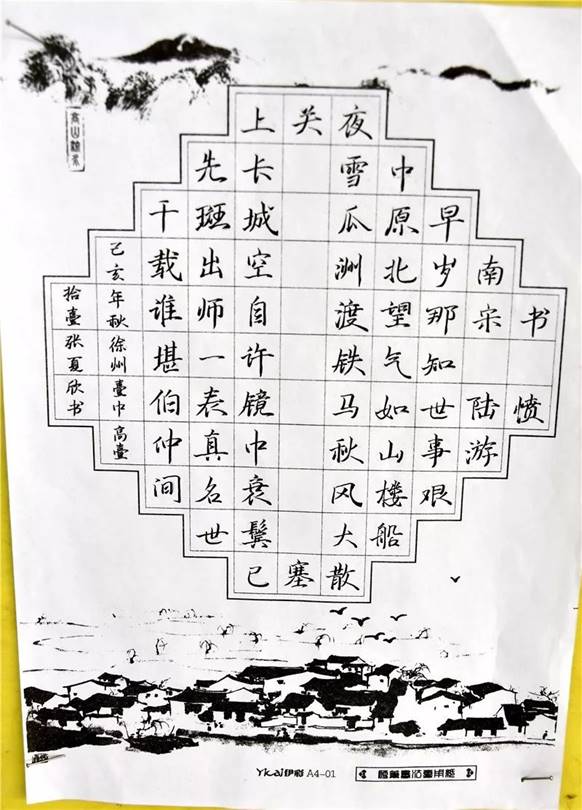 书愤
南宋 陆游
早岁那知世事艰
中原北望气如山楼船
夜雪瓜洲渡铁马秋风大散
关塞
上长城空自许镜中衰鬓已
先斑出师一表真名世
千载谁堪伯仲间
己亥年秋徐州壹中高壹
拾壹张夏欣书
高山流水
Ykai伊彩 A4-01